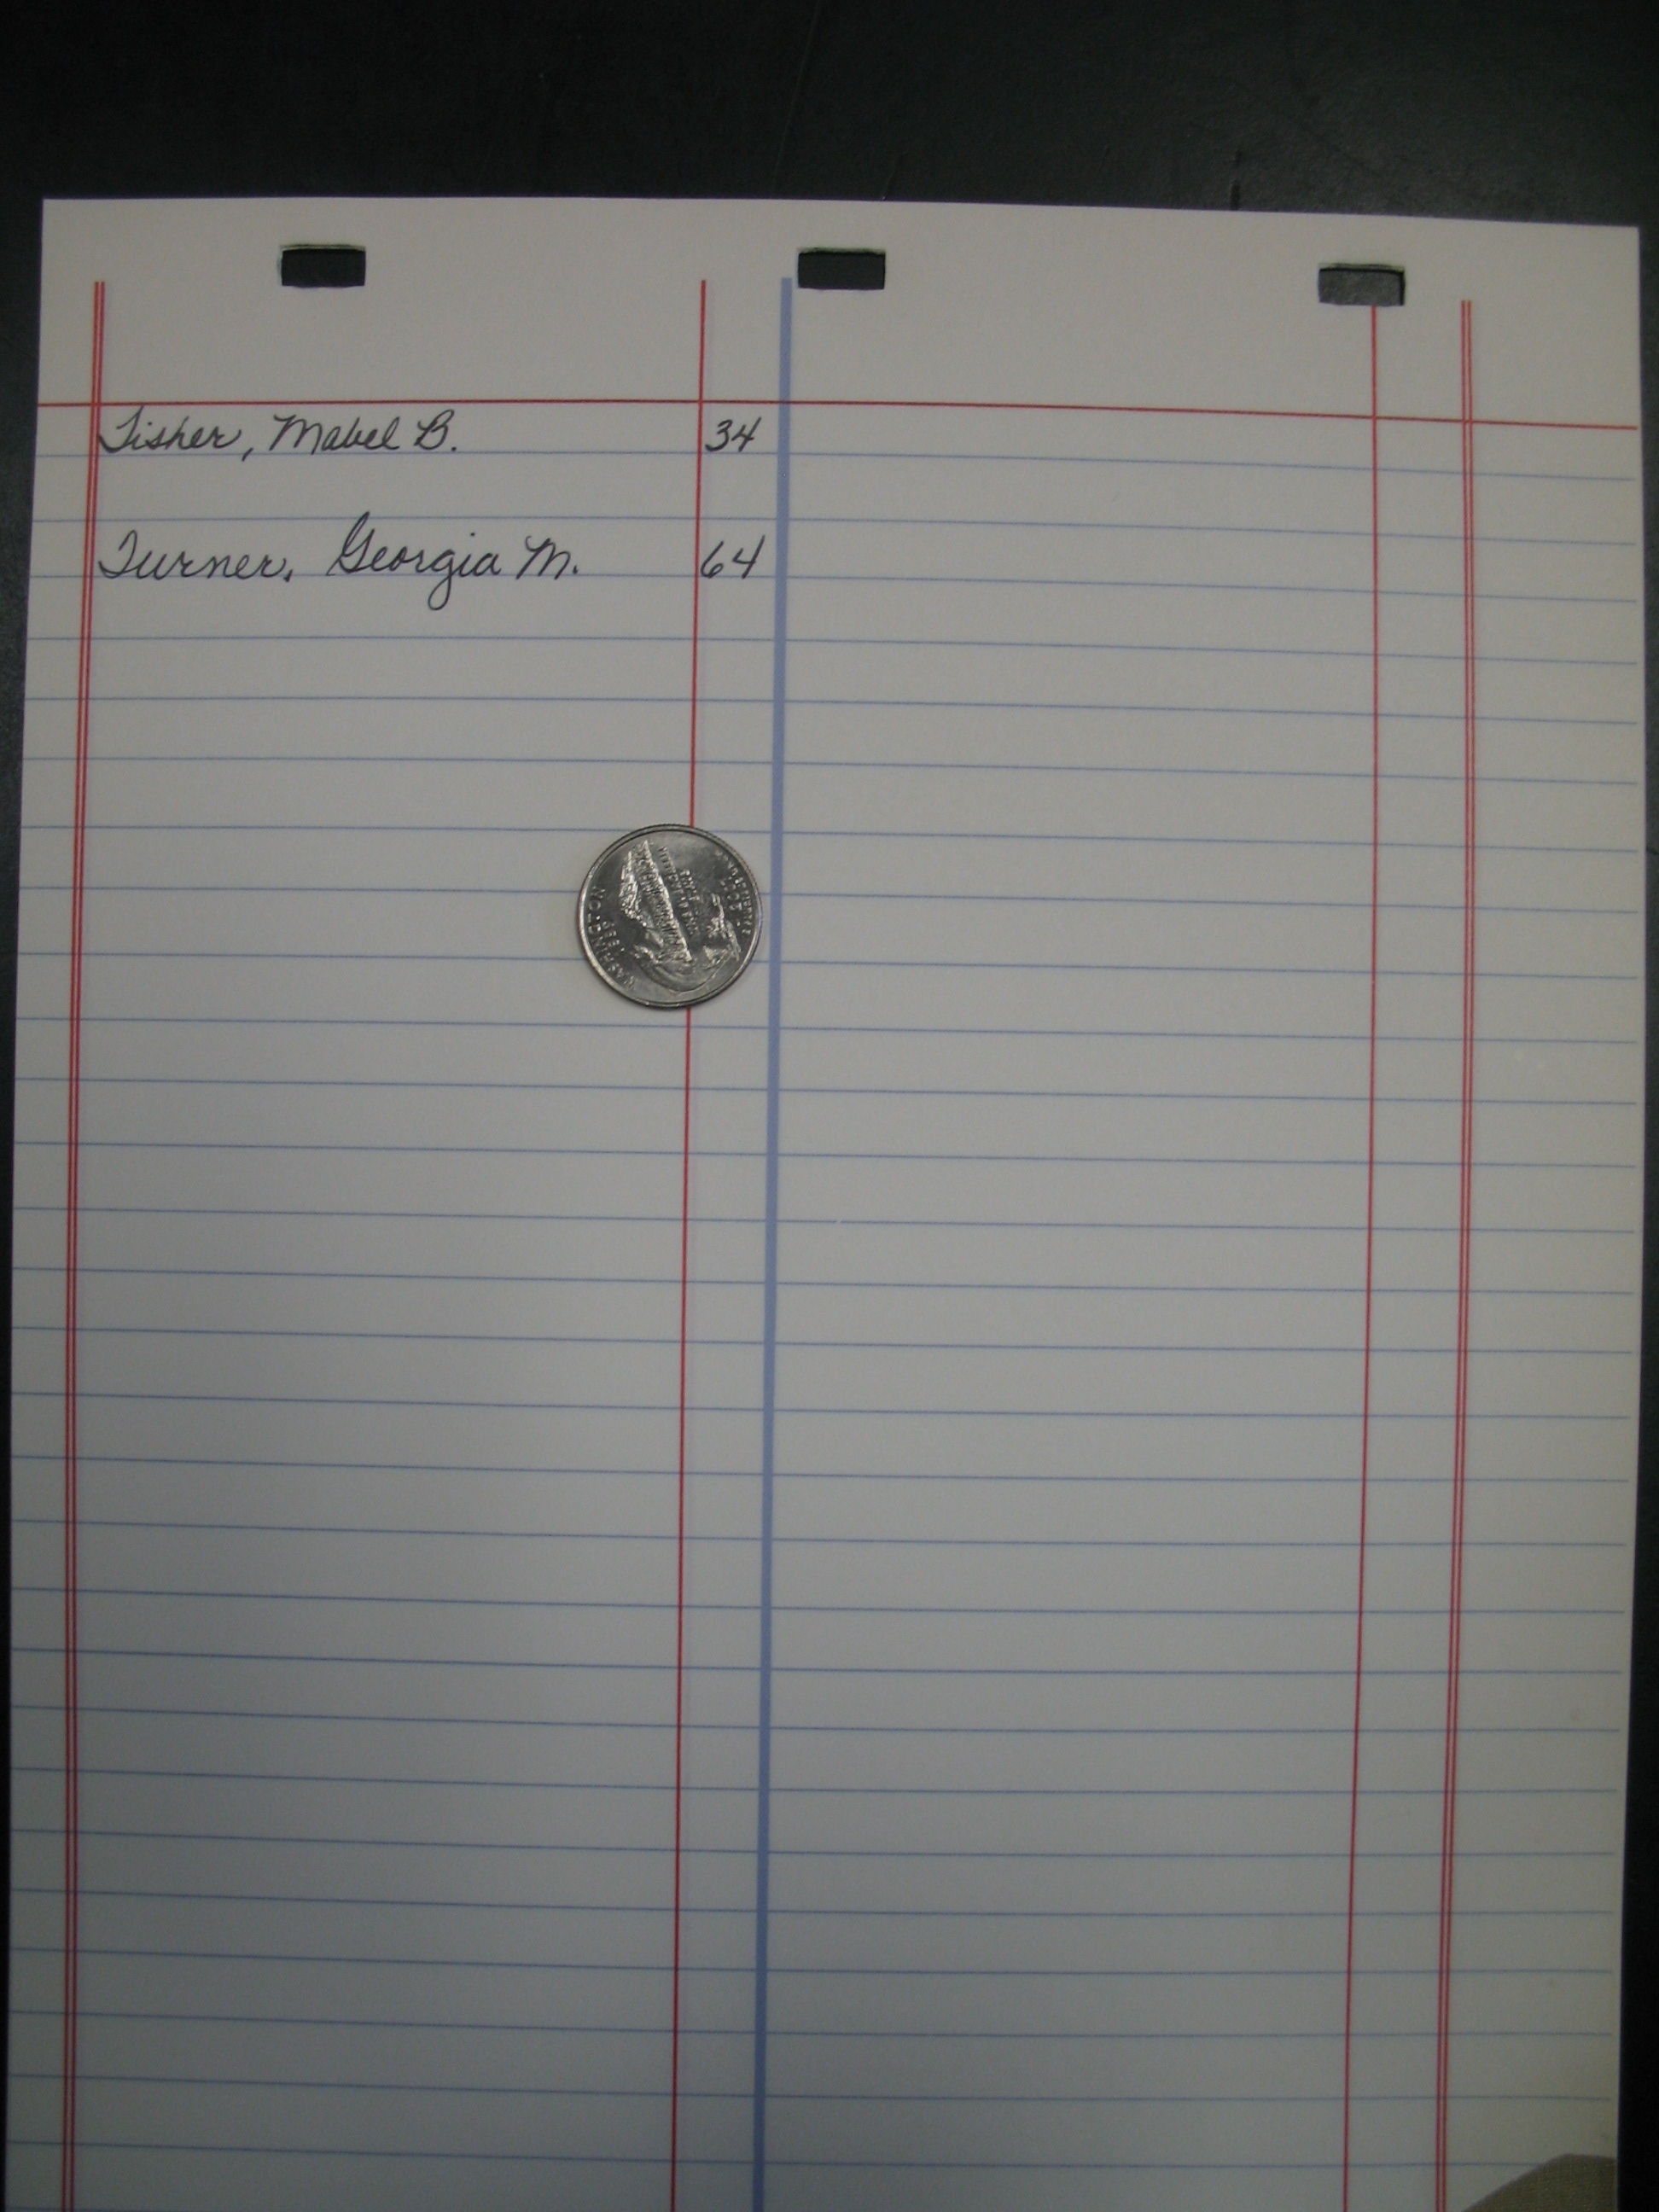 Fisher, Mabel B. 34
Turner, Georgia M. 64
WASHINGTON
1889